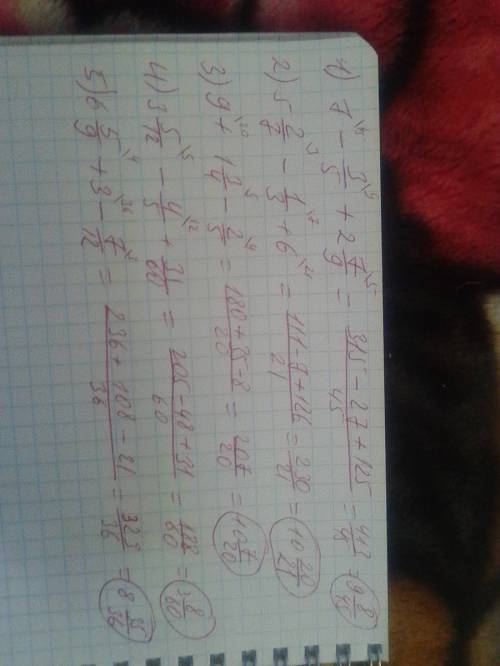 1) 7 - 3/5 + 2 7/9 = 315-27+125/45 = 413/45 = 9 8/45
2) 5 2/7 - 1/3 + 6 = 111-7+126/21 = 230/21 = 10 20/21
3) 9 + 1 3/4 - 2/5 = 180+35-8/20 = 207/20 = 10 7/20
4) 3 5/12 - 4/5 + 31/60 = 205-48+31/60 = 188/60 = 3 8/60
5) 6 5/9 + 3 - 7/12 = 236+108-21/36 = 323/36 = 8 35/36